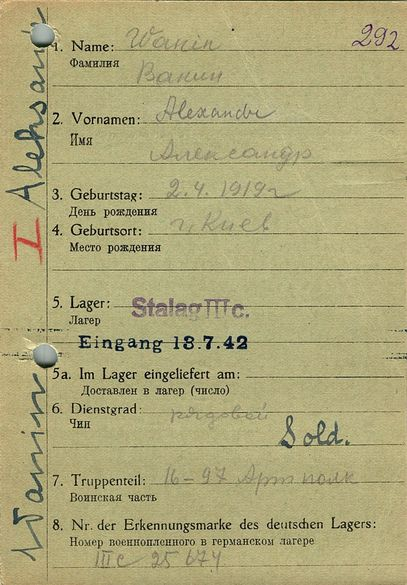 292
1. Name: Wanin
Фамилия Ванин
2. Vornamen: Alexander
Имя Александр
3. Geburtstag: 2.4.1919г
День рождения
4. Geburtsort: г. Киев
Место рождения
5. Lager: Stalag III c.
Лагер
Eingang 18.7.42
5a. Im Lager eingeliefert am:
Доставлен в лагер (число)
6. Dienstgrad: рядовой
Чин Sold.
7. Truppenteil: 16-97 Арт полк
Воинская часть
8. Nr. der Erkennungsmarke des deutschen Lagers:
Номер военнопленного в германском лагере
IIIc 25674
I
Wanin